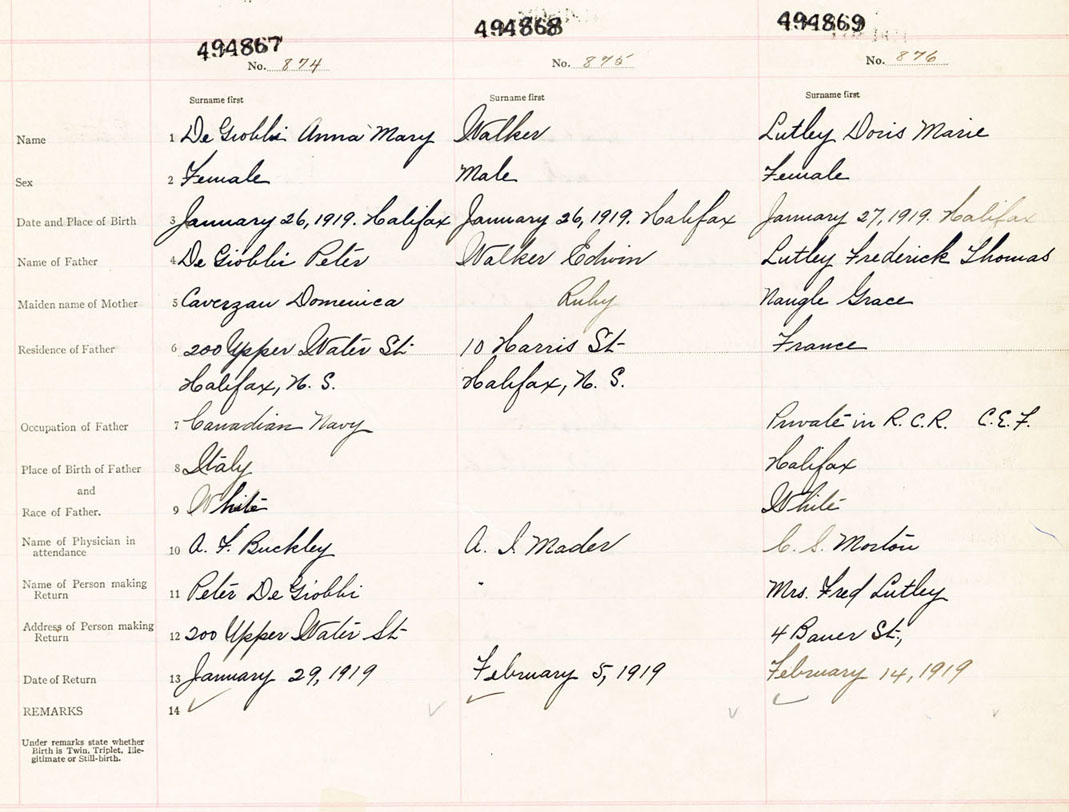 494867 494868 494869
No. 874 No. 875 No. 876
Surname first Surname first Surname first
Name 1 De Giobbi Anna Mary Walker Lutley Doris Marie
Sex 2 Female Male Female
Date and Place of Birth 3 January 26, 1919. Halifax January 26, 1919. Halifax January 27, 1919. Halifax
Name of Father 4 De Giobbi Peter Walker Edwin Lutley Frederick Thomas
Maiden name of Mother 5 Caverzan Domenica Ruby Naugle Grace
Residence of Father 6 200 Upper Water St. 10 Harris St France
Halifax, N. S. Halifax, N. S.
Occupation of Father 7 Canadian Navy Private in R. C. R. C. E. F.
Place of Birth of Father 8 Italy Halifax
and
Race of Father. 9 White White
Name of Physician in
attendance 10 A. F. Buckley A. I. Mader C. S. Morton
Name of Person making
Return 11 Peter De Giobbi " Mrs. Fred Lutley
Address of Person making
Return 12 200 Upper Water St. 4 Bauer St.,
Date of Return 13 January 29, 1919 February 5, 1919 February 14, 1919
REMARKS 14
Under remarks state whether
Birth is Twin, Triplet, Ille-
gitimate or Still-birth.